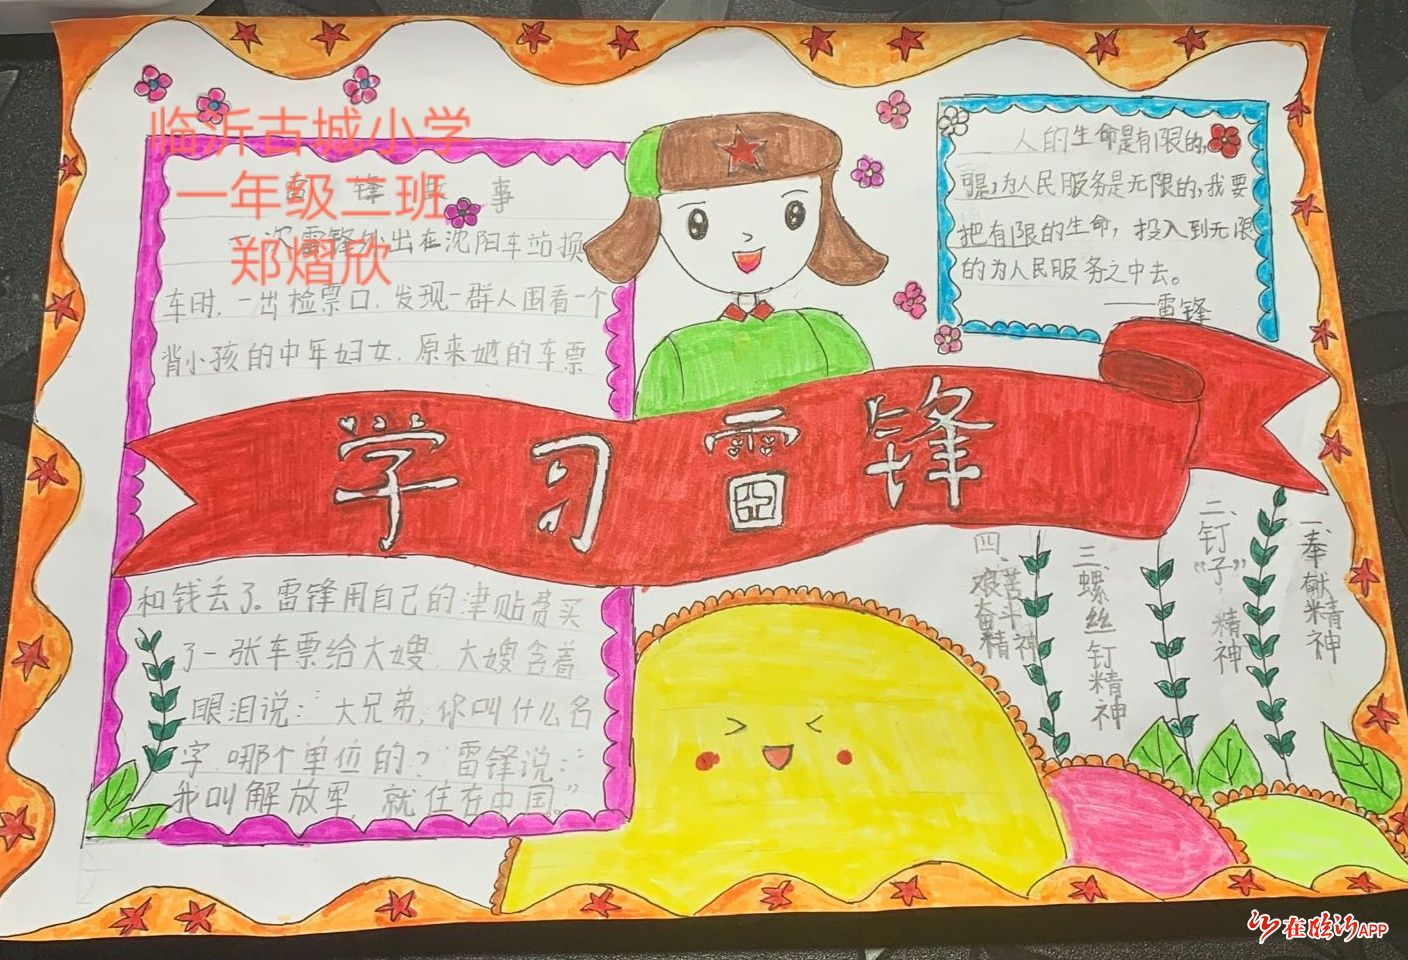 临沂古城小学
一年级二班
郑熠欣
雷锋故事
一次雷锋外出在沈阳车站换
车时,一出检票口,发现一群人围看一个
背小孩的中年妇女,原来她的车票
学习雷锋
和钱丢了。雷锋用自己的津贴费买
了一张车票给大嫂,大嫂含着
眼泪说:“大兄弟,你叫什么名
字,哪个单位的?”雷锋说:“
我叫解放军,就住在中国。”
人的生命是有限的,
可是,为人民服务是无限的,我要
把有限的生命,投入到无限
的为人民服务之中去。
——雷锋
一、奉献精神
二、“钉子”精神
三、螺丝钉精神
四、艰苦奋斗精神
在临沂APP